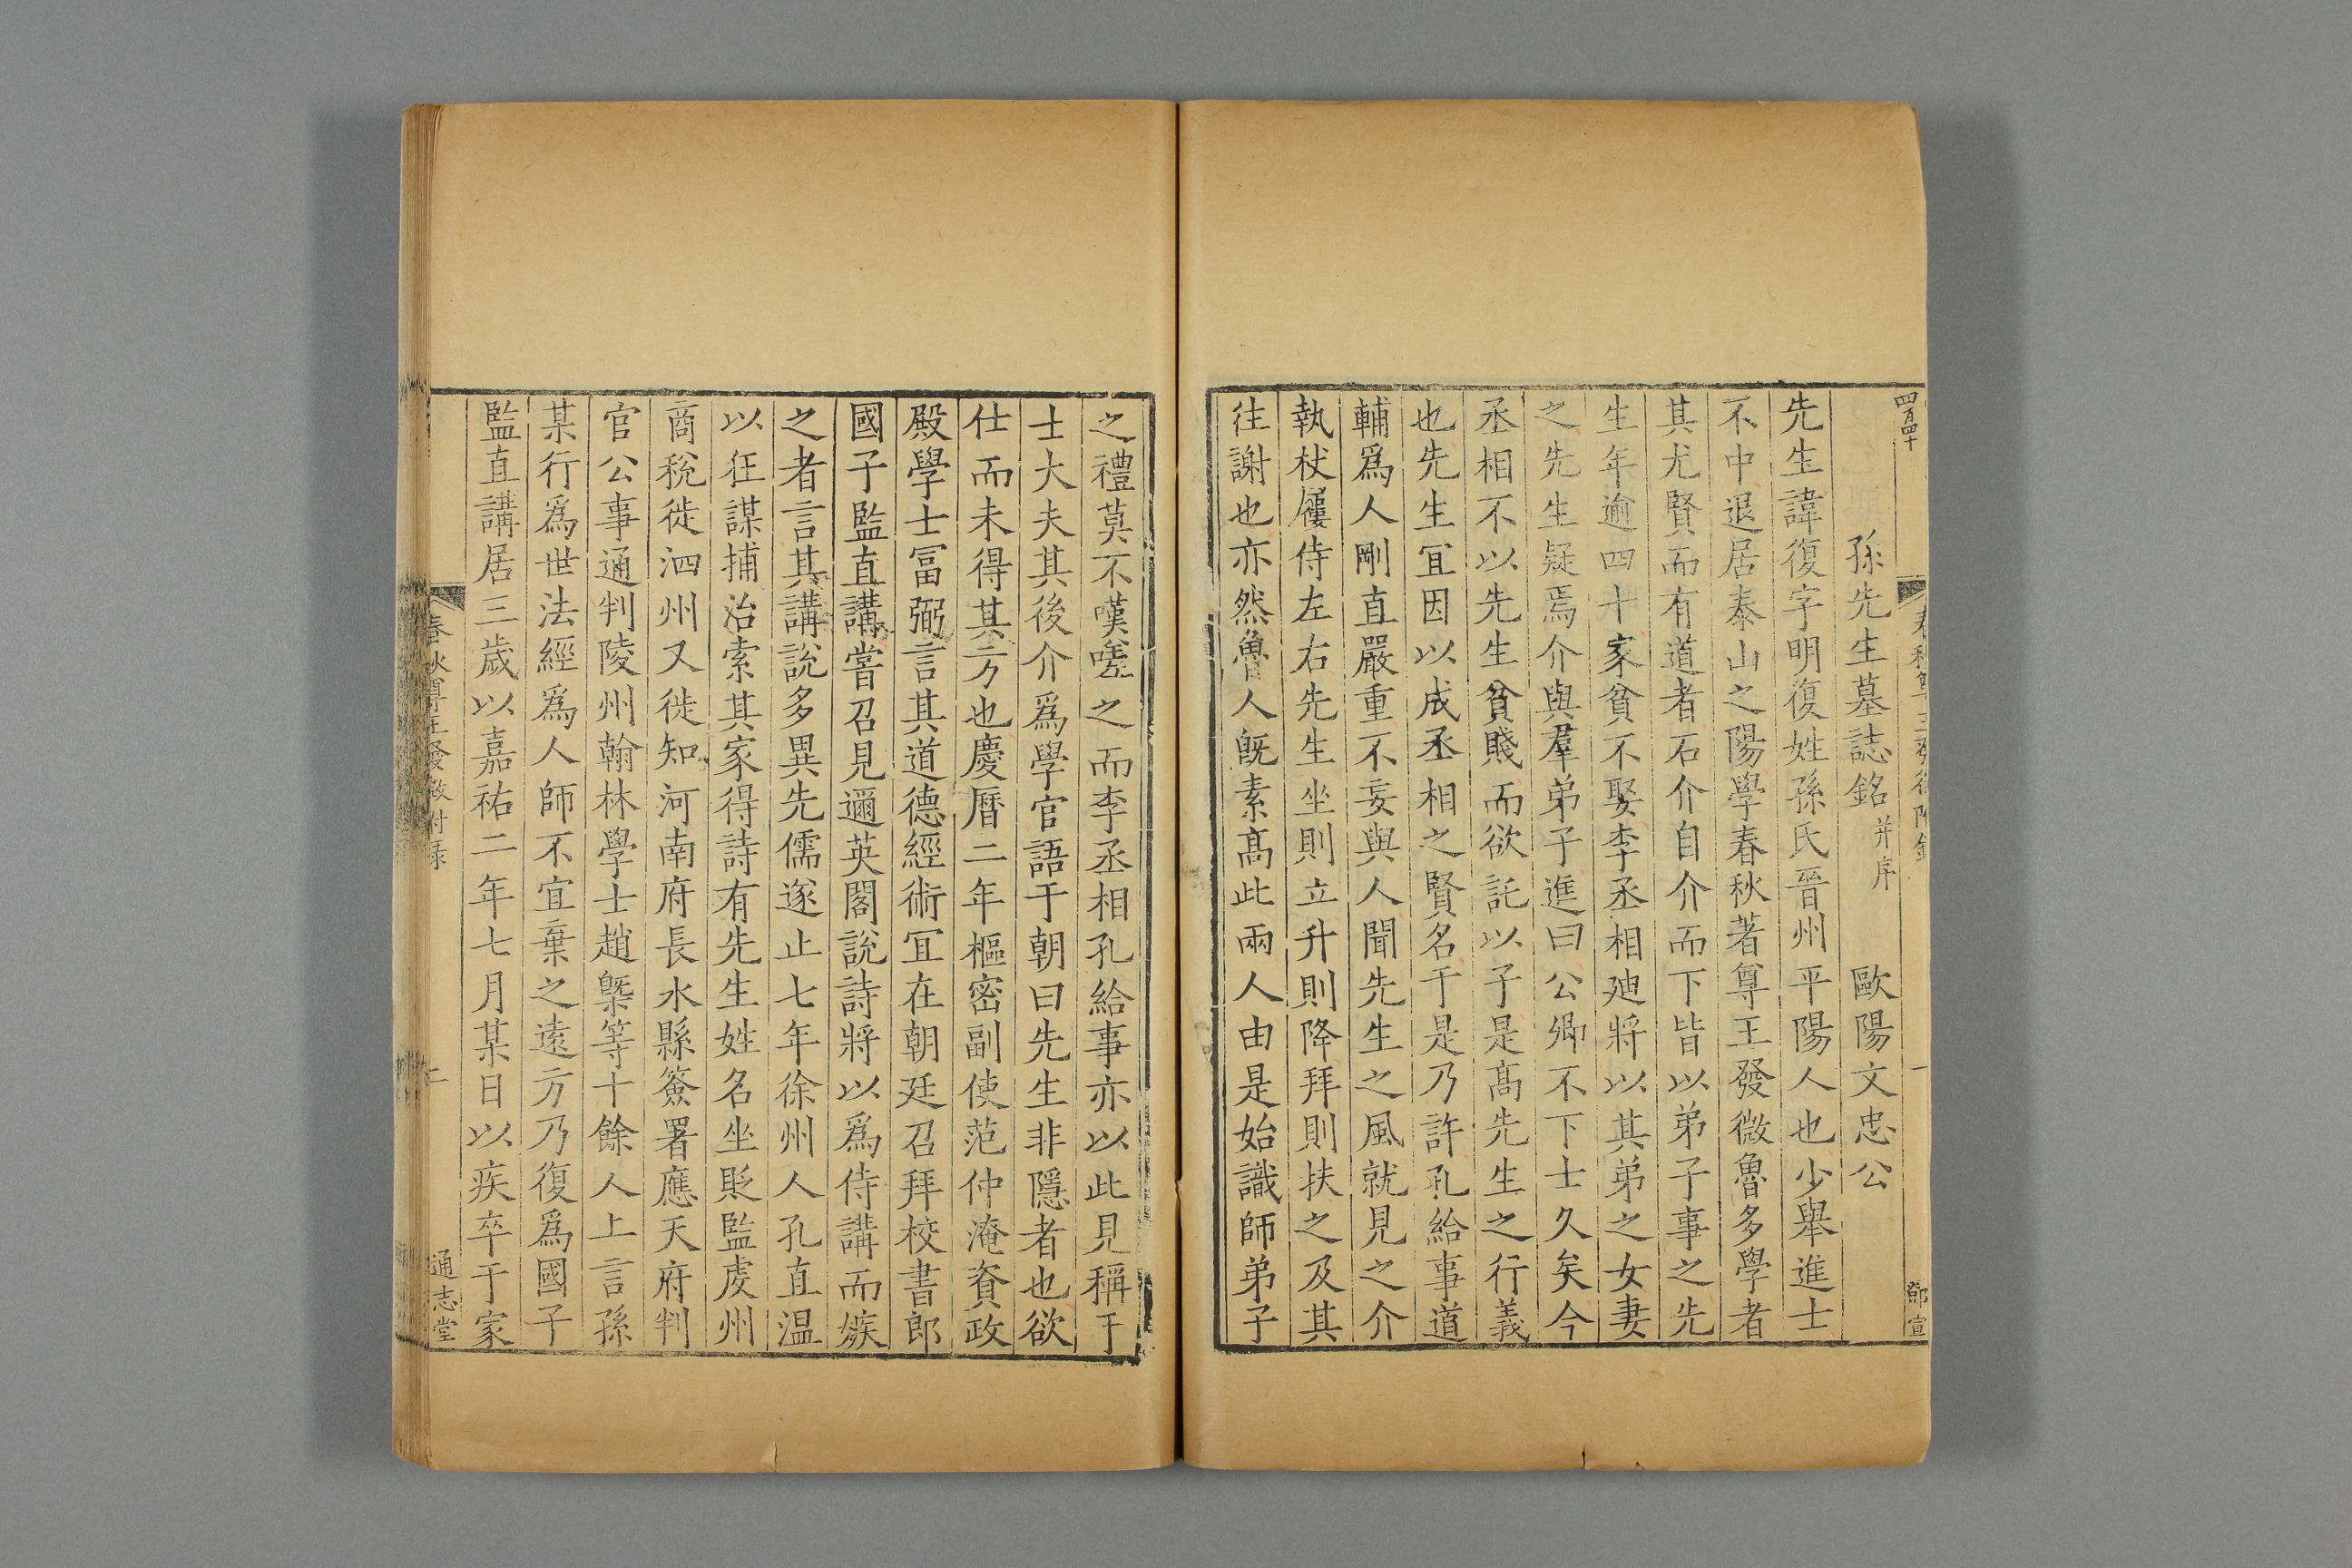 四百四十
一
鄧宣
孫先生墓誌銘并序 歐陽文忠公
先生諱復字明復姓孫氏晉州平陽人也少舉進士
不中退居泰山之陽學春秋著尊王發微魯多學者
其尤賢而有道者石介自介而下皆以弟子事之先
生年逾四十家貧不娶李丞相廸將以其弟之女妻
之先生疑焉介與羣弟子進曰公卿不下士久矣今
丞相不以先生貧賤而欲託以子是髙先生之行義
也先生冝因以成丞相之賢名于是乃許孔給事道
輔爲人剛直嚴重不妄與人聞先生之風就見之介
執杖屨侍左右先生坐則立升則降拜則扶之及其
往謝也亦然魯人旣素髙此兩人由是始識師弟子
之禮莫不嘆嗟之而李丞相孔給事亦以此見稱于
士大夫其後介爲學官語于朝曰先生非隱者也欲
仕而未得其方也慶曆二年樞密副使范仲淹資政
殿學士冨弼言其道德經術冝在朝廷召拜校書郎
國子監直講嘗召見邇英閣說詩將以爲侍講而嫉
之者言其講說多異先儒遂止七年徐州人孔直温
以狂謀捕治索其家得詩有先生姓名坐貶監虔州
商稅徙泗州又徙知河南府長水縣簽署應天府判
官公事通判陵州翰林學士趙槩等十餘人上言孫
某行爲世法經爲人師不宜棄之遠方乃復爲國子
監直講居三歲以嘉祐二年七月某日以疾卒于家
春秋尊王發微附録
二
通志堂